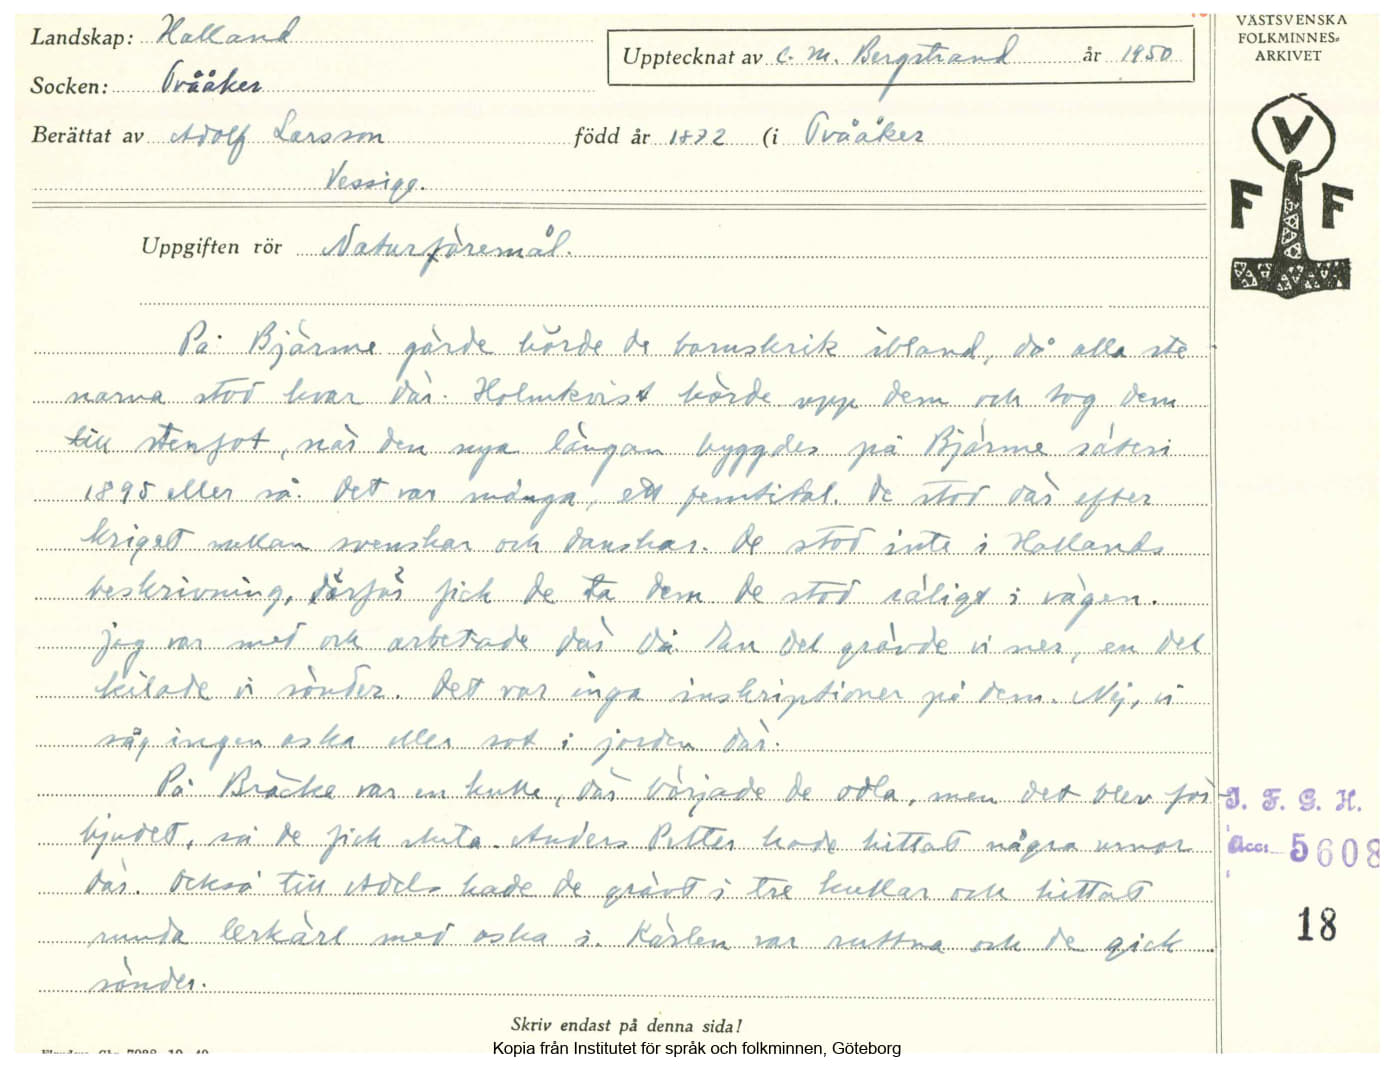 Landskap: Halland
Socken: Tvååker
Upptecknat av C. M. Bergstrand år 1950
Berättat av Adolf Larsson född år 1872 (i Tvååker
Vessige.
VÄSTSVENSKA
FOLKMINNES-
ARKIVET
V
F F
Uppgiften rör Naturföremål.
På Bjärme gärde hörde de barnskrik ibland, då alla ste
narna stod kvar där. Holmkvist körde upp dem och tog dem
till stenfot, när den nya längan byggdes på Bjärme säteri
1895 eller så. Det var många, ett femtital. De stod där efter
kriget mellan svenskar och danskar. De stod inte i Hallands
beskrivning, därför fick de ta dem de stod såligt i vägen.
jag var med och arbetade där då En del grävde vi ner, en del
kilade vi sönder. Det var inga inskriptioner på dem. Nej, vi
såg ingen aska eller sot i jorden där.
På Bräcke var en kulle, där började de odla, men det blev för
bjudet, så de fick sluta. Anders Petter hade hittat några urnor
där. Också till Adels hade de grävt i tre kullar och hittat
runda lerkärl med aska i. Kärlen var ruttna och de gick
sönder.
J. F. G. H.
Acc: 5608
18
Skriv endast på denna sida!
Kopia från Institutet för språk och folkminnen, Göteborg